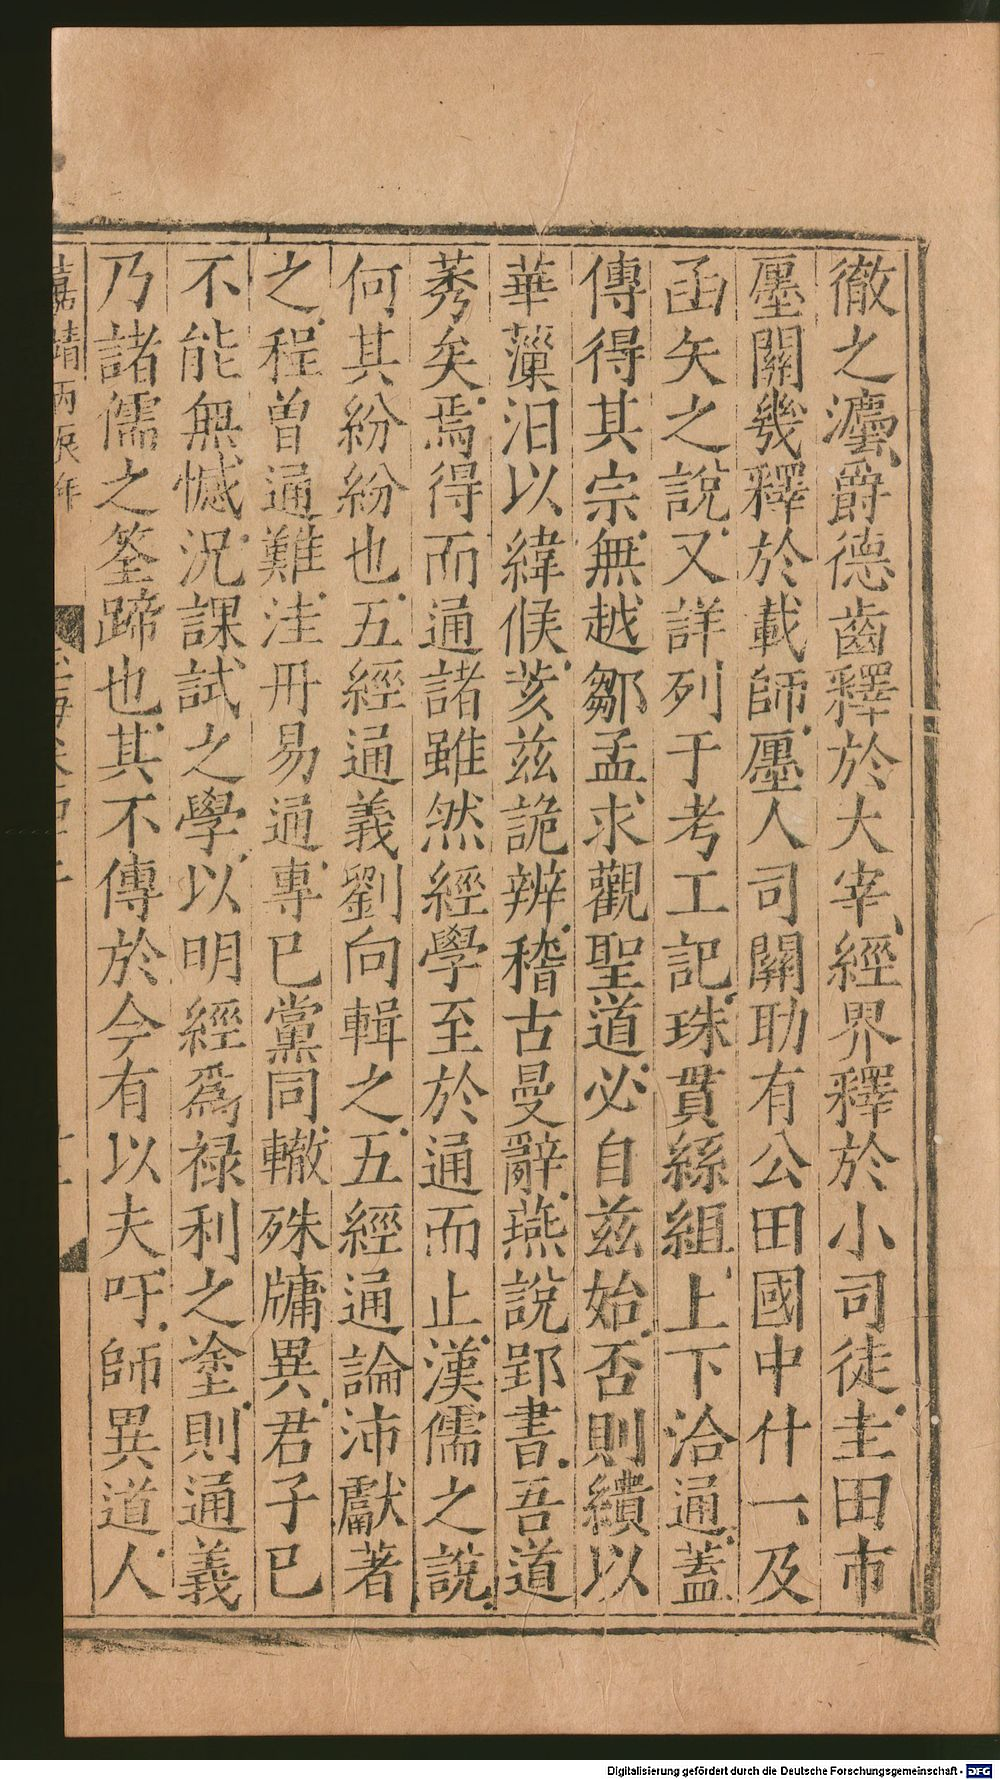 徹之灋爵德齒釋於大宰經界釋於小司徒圭田市
廛關幾釋於載師廛人司關助有公田國中什一及
函矢之說又詳列于考工記珠貫絲組上下洽通蓋
傳得其宗無越鄒孟求觀聖道必自茲始否則繢以
華薻汩以緯候茇茲詭辨稽古曼辭燕說郢書吾道
莠矣焉得而通諸雖然經學至於通而止漢儒之說
何其紛紛也五經通義劉向輯之五經通論沛獻著
之程曾通難洼丹易通專已黨同轍殊牗異君子已
不能無憾況課試之學以明經爲禄利之塗則通義
乃諸儒之筌蹄也其不傳於今有以夫吁師異道人
嘉靖丙辰年
Digitalisierung gefördert durch die Deutsche Forschungsgemeinschaft - DFG